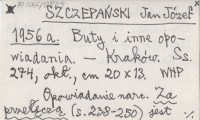 SZCZEPAŃSKI Jan Józef
1956 a. Buty i inne opo-
wiadania. – Kraków. Ss.
274, okł., cm 20 x 13. WHP
Opowiadanie narc. Za
przełęczą (s. 238-250) jest %